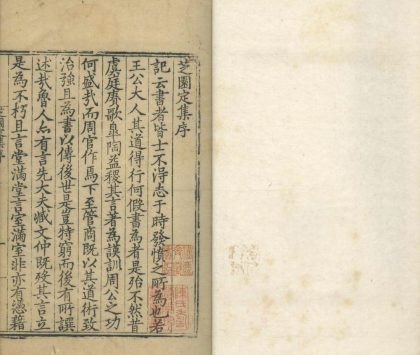 芝園定集序
記云書者皆士不得志于時發憤之所為也若
王公大人其道得行何假書為者是殆不然昔
虞庭賡歌臯陶益稷其言著為謨訓周公之功
何盛哉而周官作焉下至管商既以其道術致
治強且為書以傳後世是豈待窮而後有所譔
述哉魯人亦有言先大夫臧文仲既歿其言立
是為不朽且言堂滿堂言室滿室非亦有憑藉